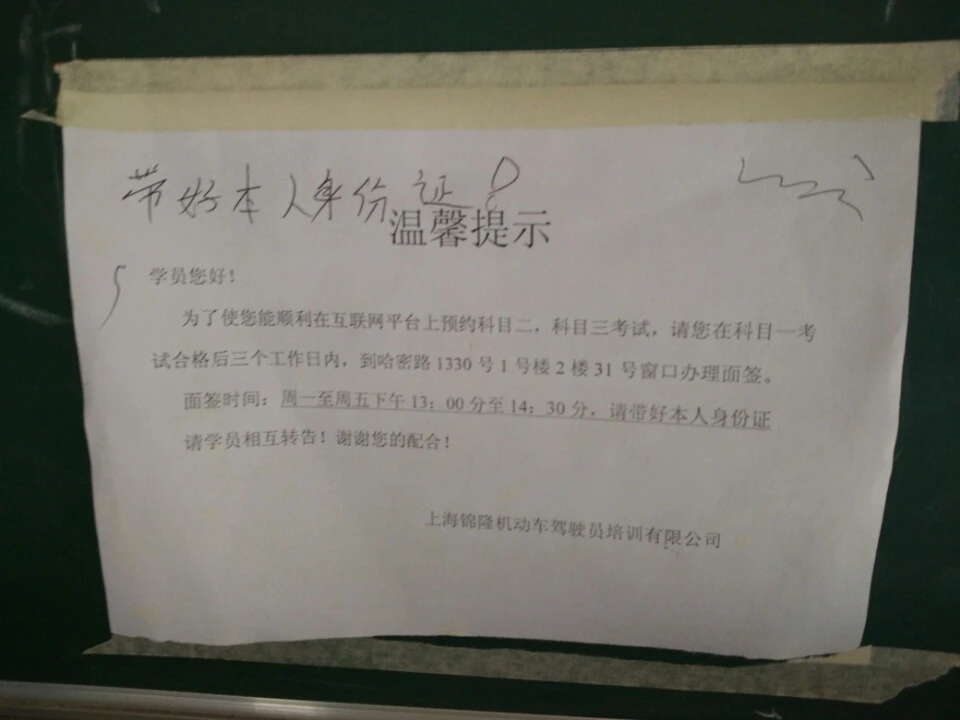 带好本人身份证!
温馨提示
学员您好!
为了使您能顺利在互联网平台上预约科目二,科目三考试,请您在科目一考
试合格后三个工作日内,到哈密路1330号1号楼2楼31号窗口办理面签。
面签时间:周一至周五下午13:00分至14:30分,请带好本人身份证
请学员相互转告!谢谢您的配合!
上海锦隆机动车驾驶员培训有限公司